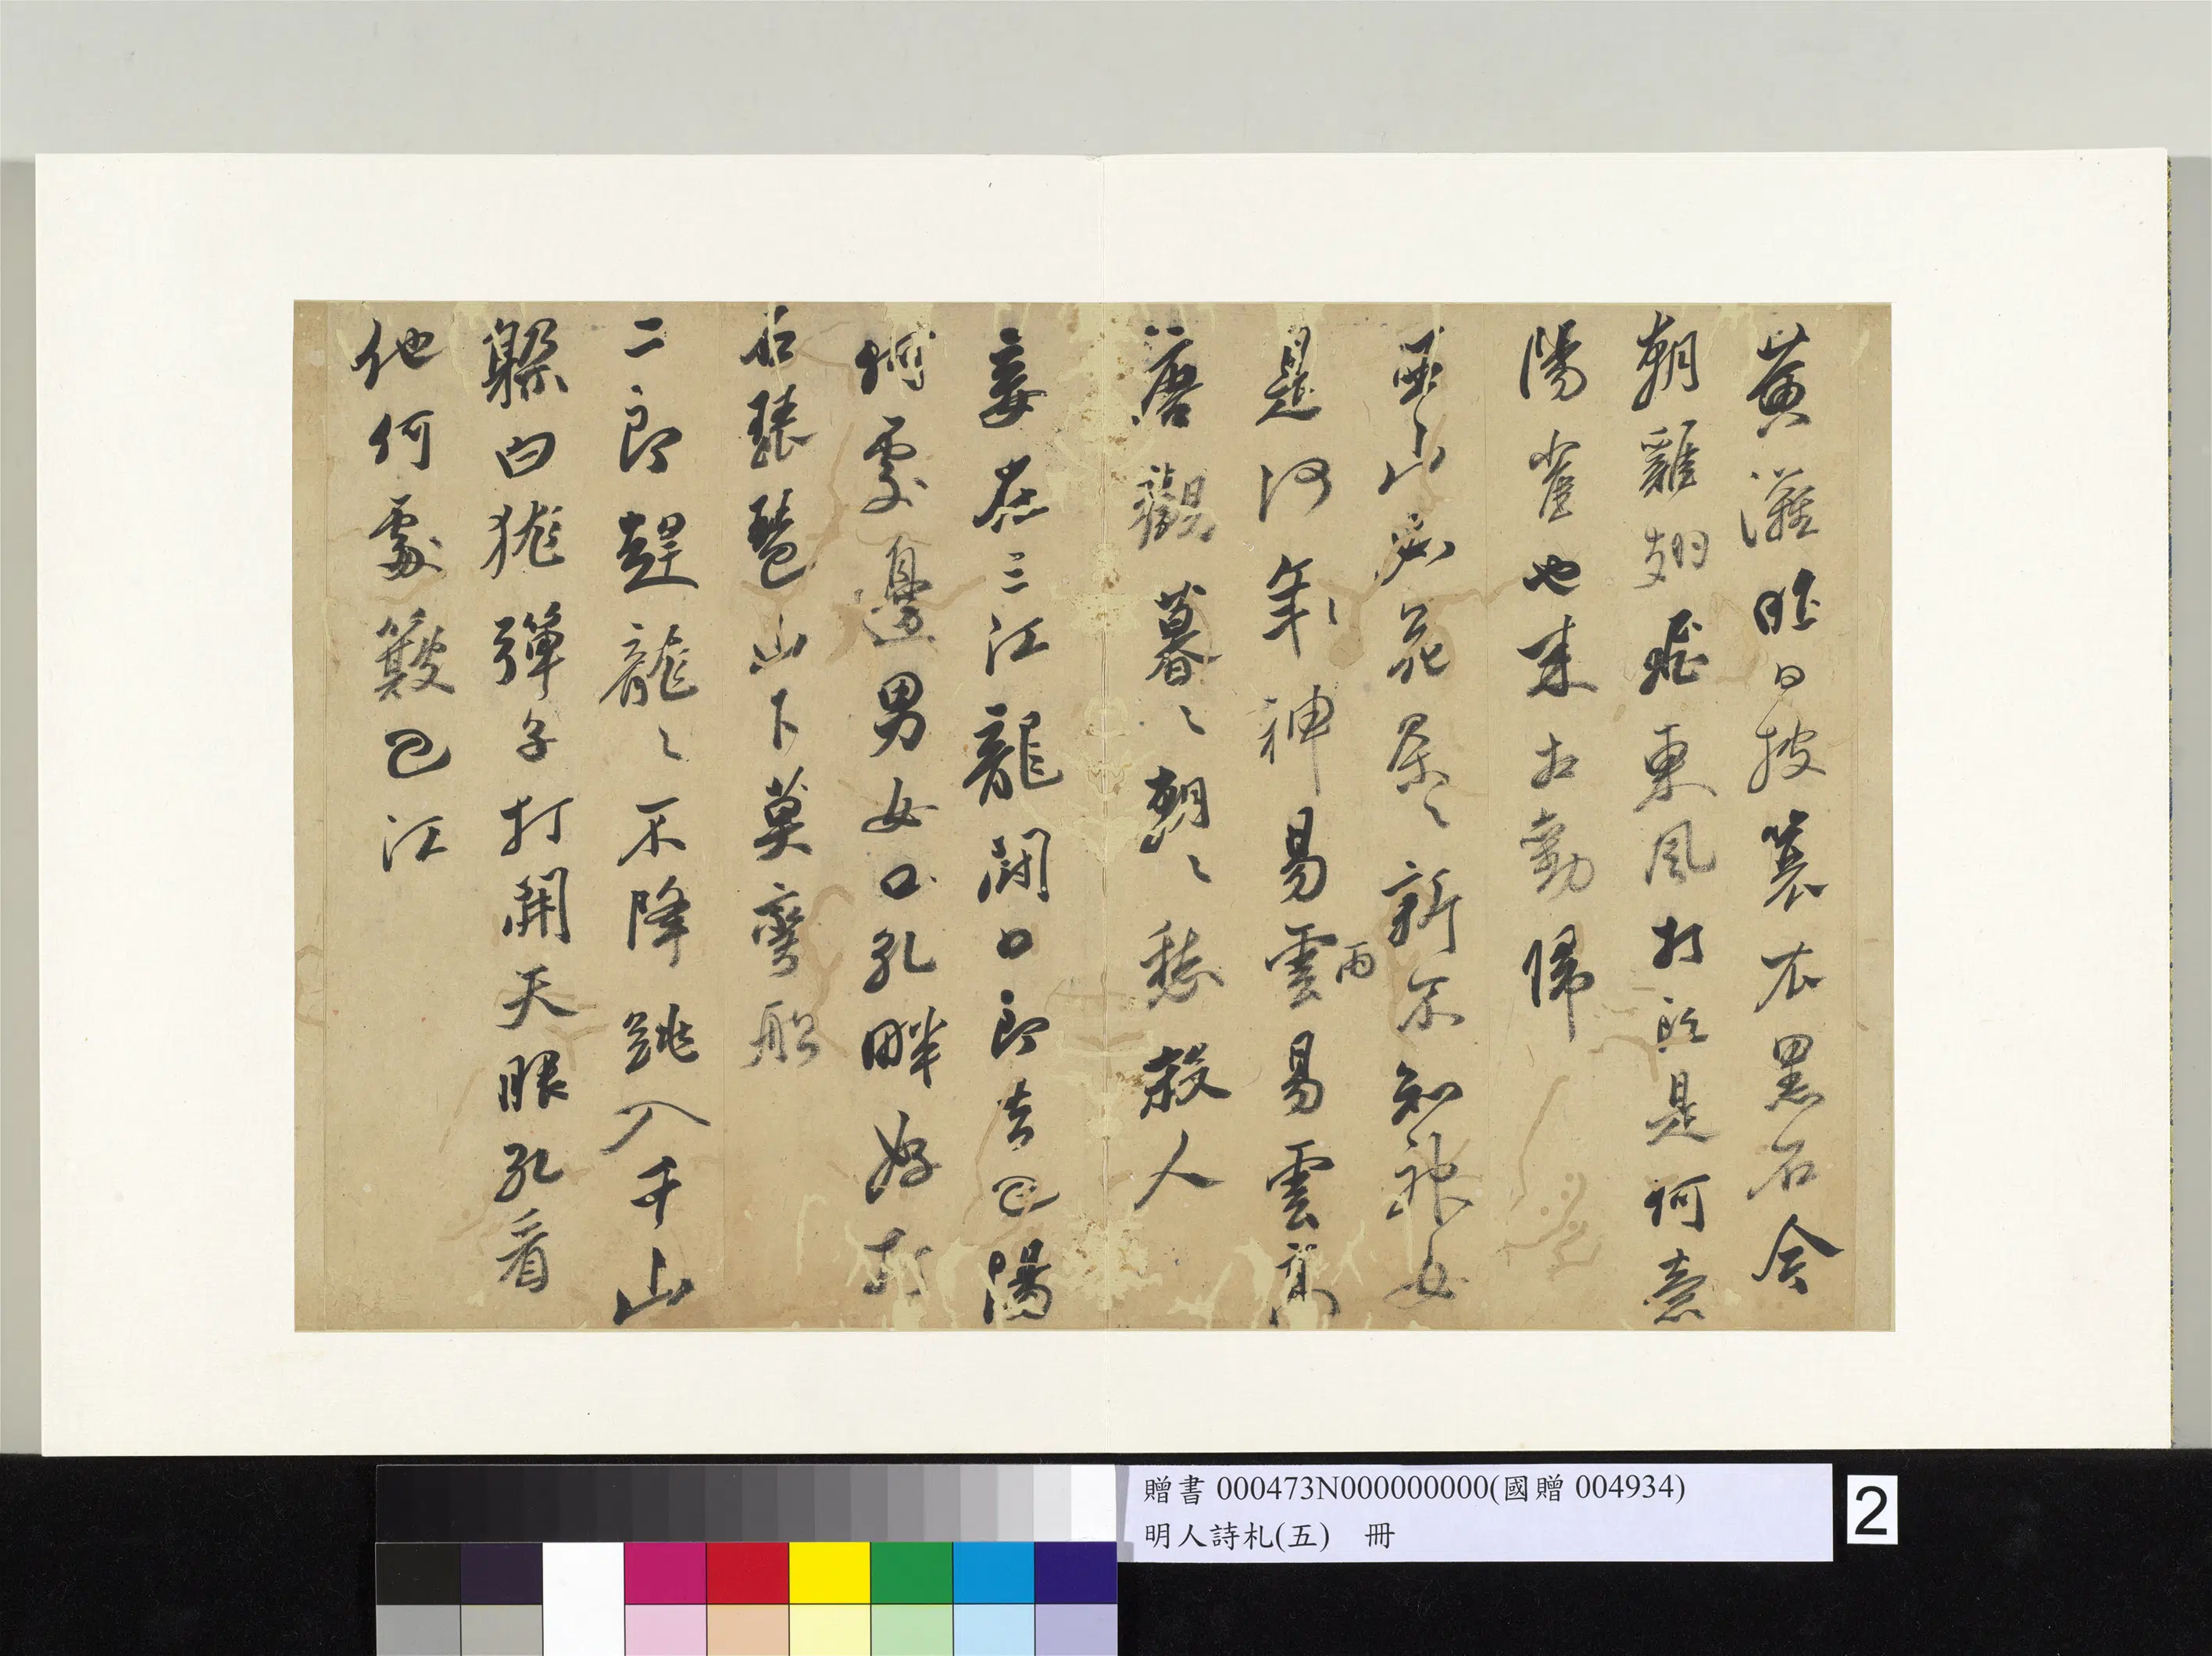 黃灘昨日披蓑衣黑石今
朝雞翅飛東風打頭是何意
陽雀也來相勸歸
巫山山花朵〻新不知神女
是何年神易雲雨易雲高
唐觀暮〻朝〻愁殺人
妾在三江龍開口郎去巴陽
何處邊男女口孔畔好打
石琵琶山下莫彎船
二郎趕龍〻不降跳入千山
緊白猿彈子打開天眼孔看
他何處簸巴江
贈書 000473N000000000(國贈 004934)
明人詩札(五) 冊
2